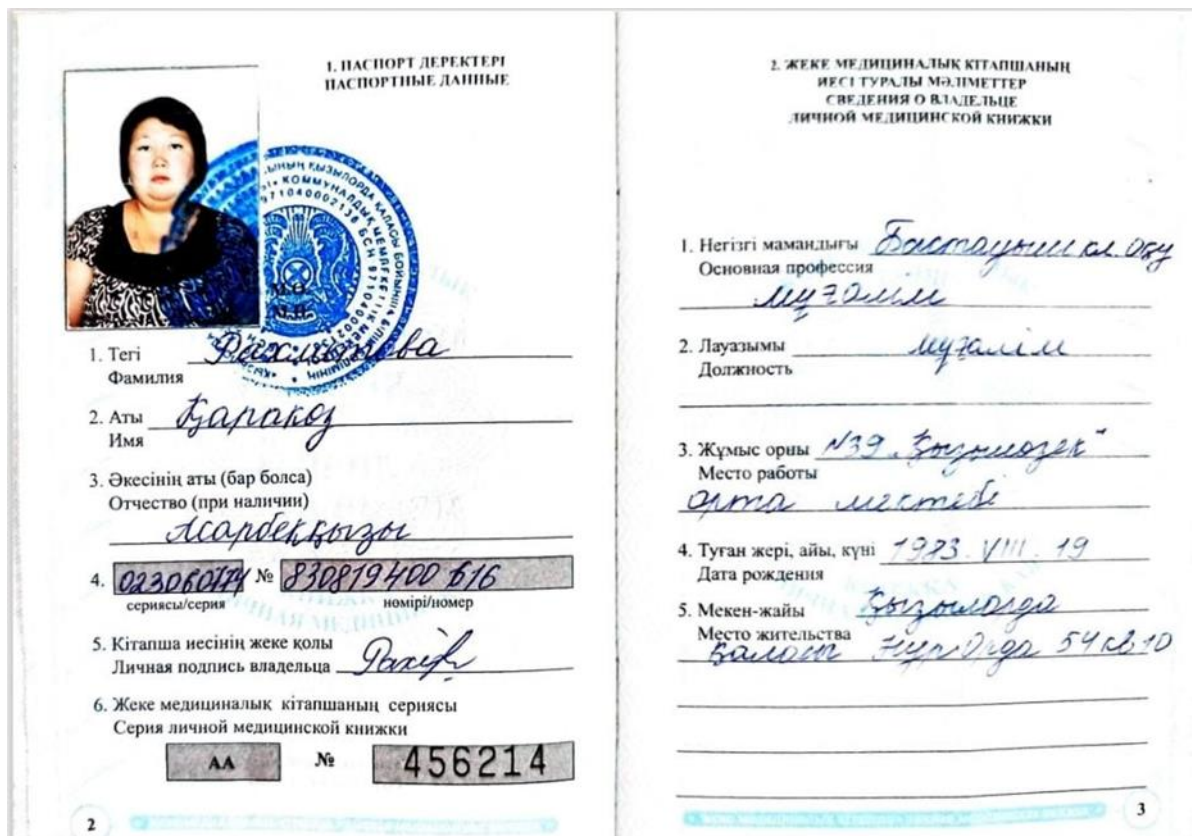 1. ПАСПОРТ ДЕРЕКТЕРІ
ПАСПОРТНЫЕ ДАННЫЕ
М.О.
М.П.
1. Тегі
Фамилия
2. Аты Қаракөз
Имя
3. Әкесінің аты (бар болса)
Отчество (при наличии)
4. 023060774 № 830819400616
сериясы/серия нөмірі/номер
5. Кітапша иесінің жеке қолы
Личная подпись владельца
6. Жеке медициналық кітапшаның сериясы
Серия личной медицинской книжки
АА № 456214
2
2. ЖЕКЕ МЕДИЦИНАЛЫҚ КІТАПШАНЫҢ
ИЕСІ ТУРАЛЫ МӘЛІМЕТТЕР
СВЕДЕНИЯ О ВЛАДЕЛЬЦЕ
ЛИЧНОЙ МЕДИЦИНСКОЙ КНИЖКИ
1. Негізгі мамандығы Бастауыш кл. оқу
Основная профессия
мұғалім
2. Лауазымы мұғалім
Должность
3. Жұмыс орны №39 „Қызылөзек"
Место работы
орта мектебі
4. Туған жері, айы, күні 1983. VIII. 19
Дата рождения
5. Мекен-жайы Қызылорда
Место жительства
қаласы НұрОрда 54 кв 10
3